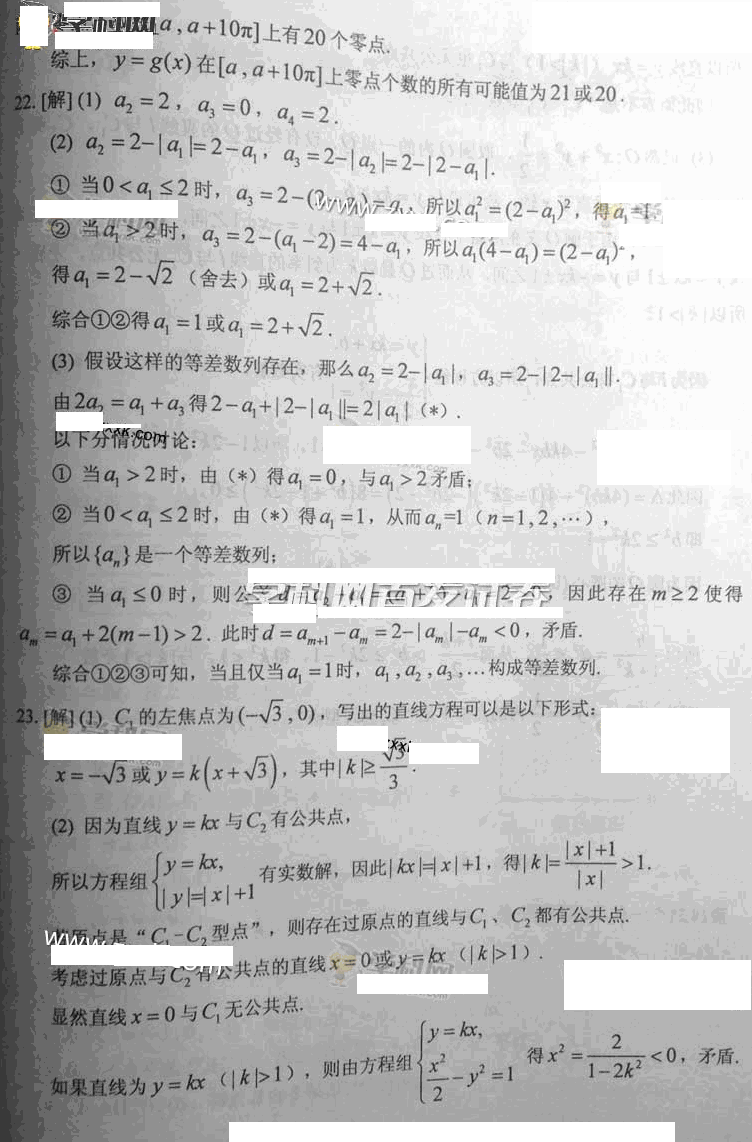 a, a+10π]上有20个零点.
综上, y=g(x)在[a, a+10π]上零点个数的所有可能值为21或20.
22. [解] (1) a₂=2, a₃=0, a₄=2.
(2) a₂=2-|a₁|=2-a₁, a₃=2-|a₂|=2-|2-a₁|.
① 当0<a₁≤2时, a₃=2-(2-a₁)=a₁, 所以a₁²=(2-a₁)², 得a₁=1.
② 当a₁>2时, a₃=2-(a₁-2)=4-a₁, 所以a₁(4-a₁)=(2-a₁)²,
得a₁=2-√2 (舍去) 或a₁=2+√2.
综合①②得a₁=1或a₁=2+√2.
(3) 假设这样的等差数列存在, 那么a₂=2-|a₁|, a₃=2-|2-|a₁||.
由2a₂=a₁+a₃得2-a₁+|2-|a₁||=2|a₁| (*).
以下分情况讨论:
① 当a₁>2时, 由 (*) 得a₁=0, 与a₁>2矛盾;
② 当0<a₁≤2时, 由 (*) 得a₁=1, 从而aₙ=1 (n=1,2,⋯),
所以{aₙ}是一个等差数列;
③ 当a₁≤0时, 则公差d=a₂-a₁= 因此存在m≥2使得
aₘ=a₁+2(m-1)>2. 此时d=aₘ₊₁-aₘ=2-|aₘ|-aₘ<0, 矛盾.
综合①②③可知, 当且仅当a₁=1时, a₁,a₂,a₃,…构成等差数列.
23. [解] (1) C₁的左焦点为(-√3,0), 写出的直线方程可以是以下形式:
x=-√3或y=k(x+√3), 其中|k|≥√3/3.
(2) 因为直线y=kx与C₂有公共点,
所以方程组{y=kx, |y|=|x|+1 有实数解, 因此|kx|=|x|+1, 得|k|=(|x|+1)/|x|>1.
原点是“C₁-C₂型点”, 则存在过原点的直线与C₁、C₂都有公共点.
考虑过原点与C₂有公共点的直线x=0或y=kx (|k|>1).
显然直线x=0与C₁无公共点.
如果直线为y=kx (|k|>1), 则由方程组{y=kx, x²/2-y²=1 得x²=2/(1-2k²)<0, 矛盾.